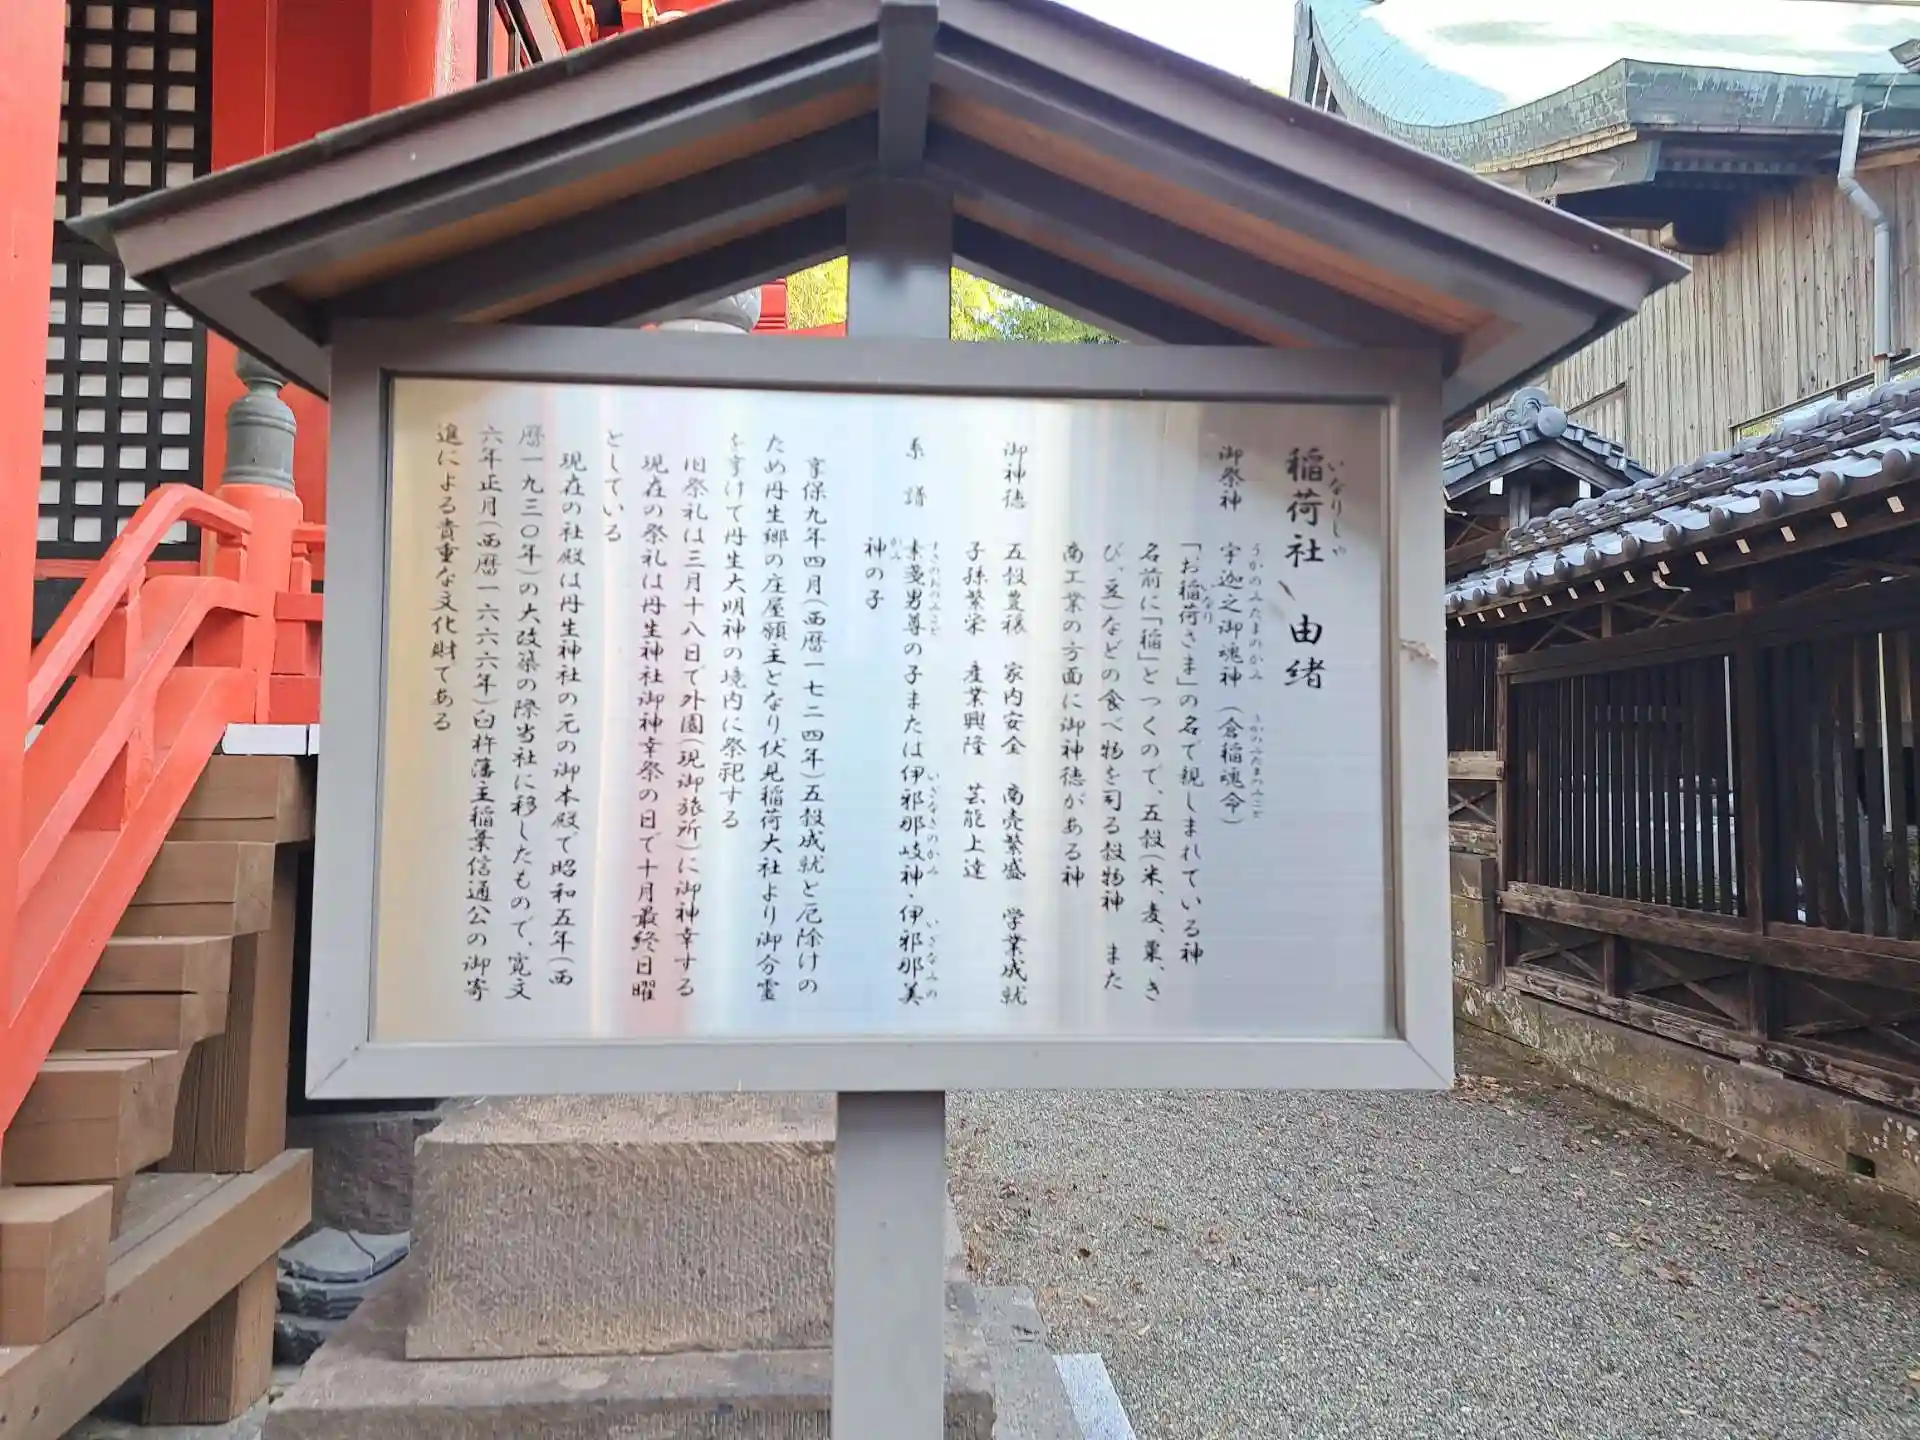 稲荷社 由緒
御祭神 宇迦之御魂神（倉稲魂命）
「お稲荷さま」の名で親しまれている神
名前に「稲」とつくので、五穀（米、麦、粟、き
び、豆）などの食べ物を司る穀物神 また
商工業の方面に御神徳がある神
御神徳 五穀豊穣 家内安全 商売繁盛 学業成就
子孫繁栄 産業興隆 芸能上達
系譜 素戔男尊の子または伊邪那岐神・伊邪那美
神の子
享保九年四月（西暦一七二四年）五穀成就と厄除けの
ため丹生郷の庄屋願主となり伏見稲荷大社より御分霊
を享けて丹生大明神の境内に祭祀する
旧祭礼は三月十八日で外園（現御旅所）に御神幸する
現在の祭礼は丹生神社御神幸祭の日で十月最終日曜
としている
現在の社殿は丹生神社の元の御本殿で昭和五年（西
暦一九三〇年）の大改築の際当社に移したもので、寛文
六年正月（西暦一六六六年）臼杵藩主稲葉信通公の御寄
進による貴重な文化財である